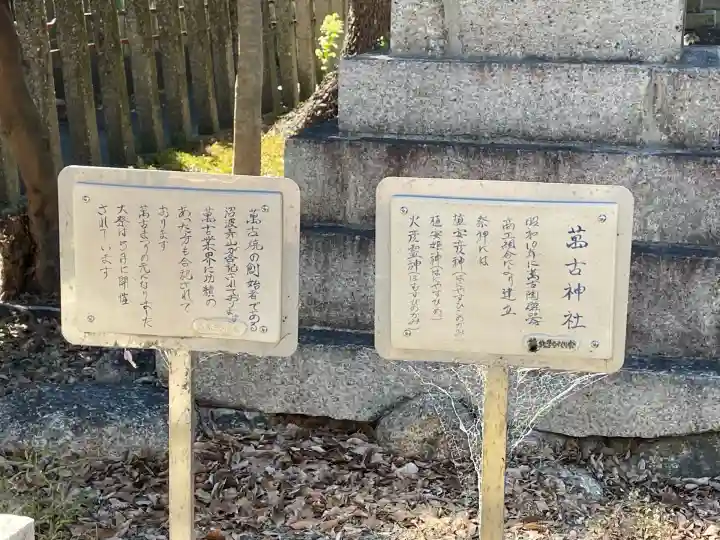 萬古神社
昭和10年に萬古陶磁器
商工組合により建立
祭神は
埴安彦神(はにやすひこのかみ)
埴安姫神(はにやすひめ)
火産霊神(ほむすびのかみ)
萬古焼の創始者である
沼波弄山が合祀されており
萬古業界に功績の
あった方も合祀されて
おります
萬古まつりの元となりました
大祭は5月に開催
されています